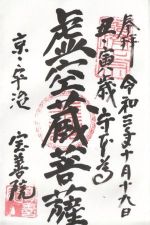 奉拝 令和三年十月十九日
丑・寅歳守本尊
虚空蔵菩薩
京・宇治
宝善院